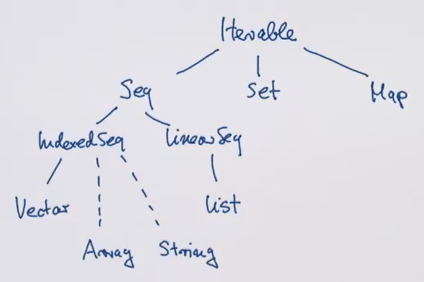 Iterable
Seq Set Map
IndexedSeq LinearSeq
Vector List
Array String